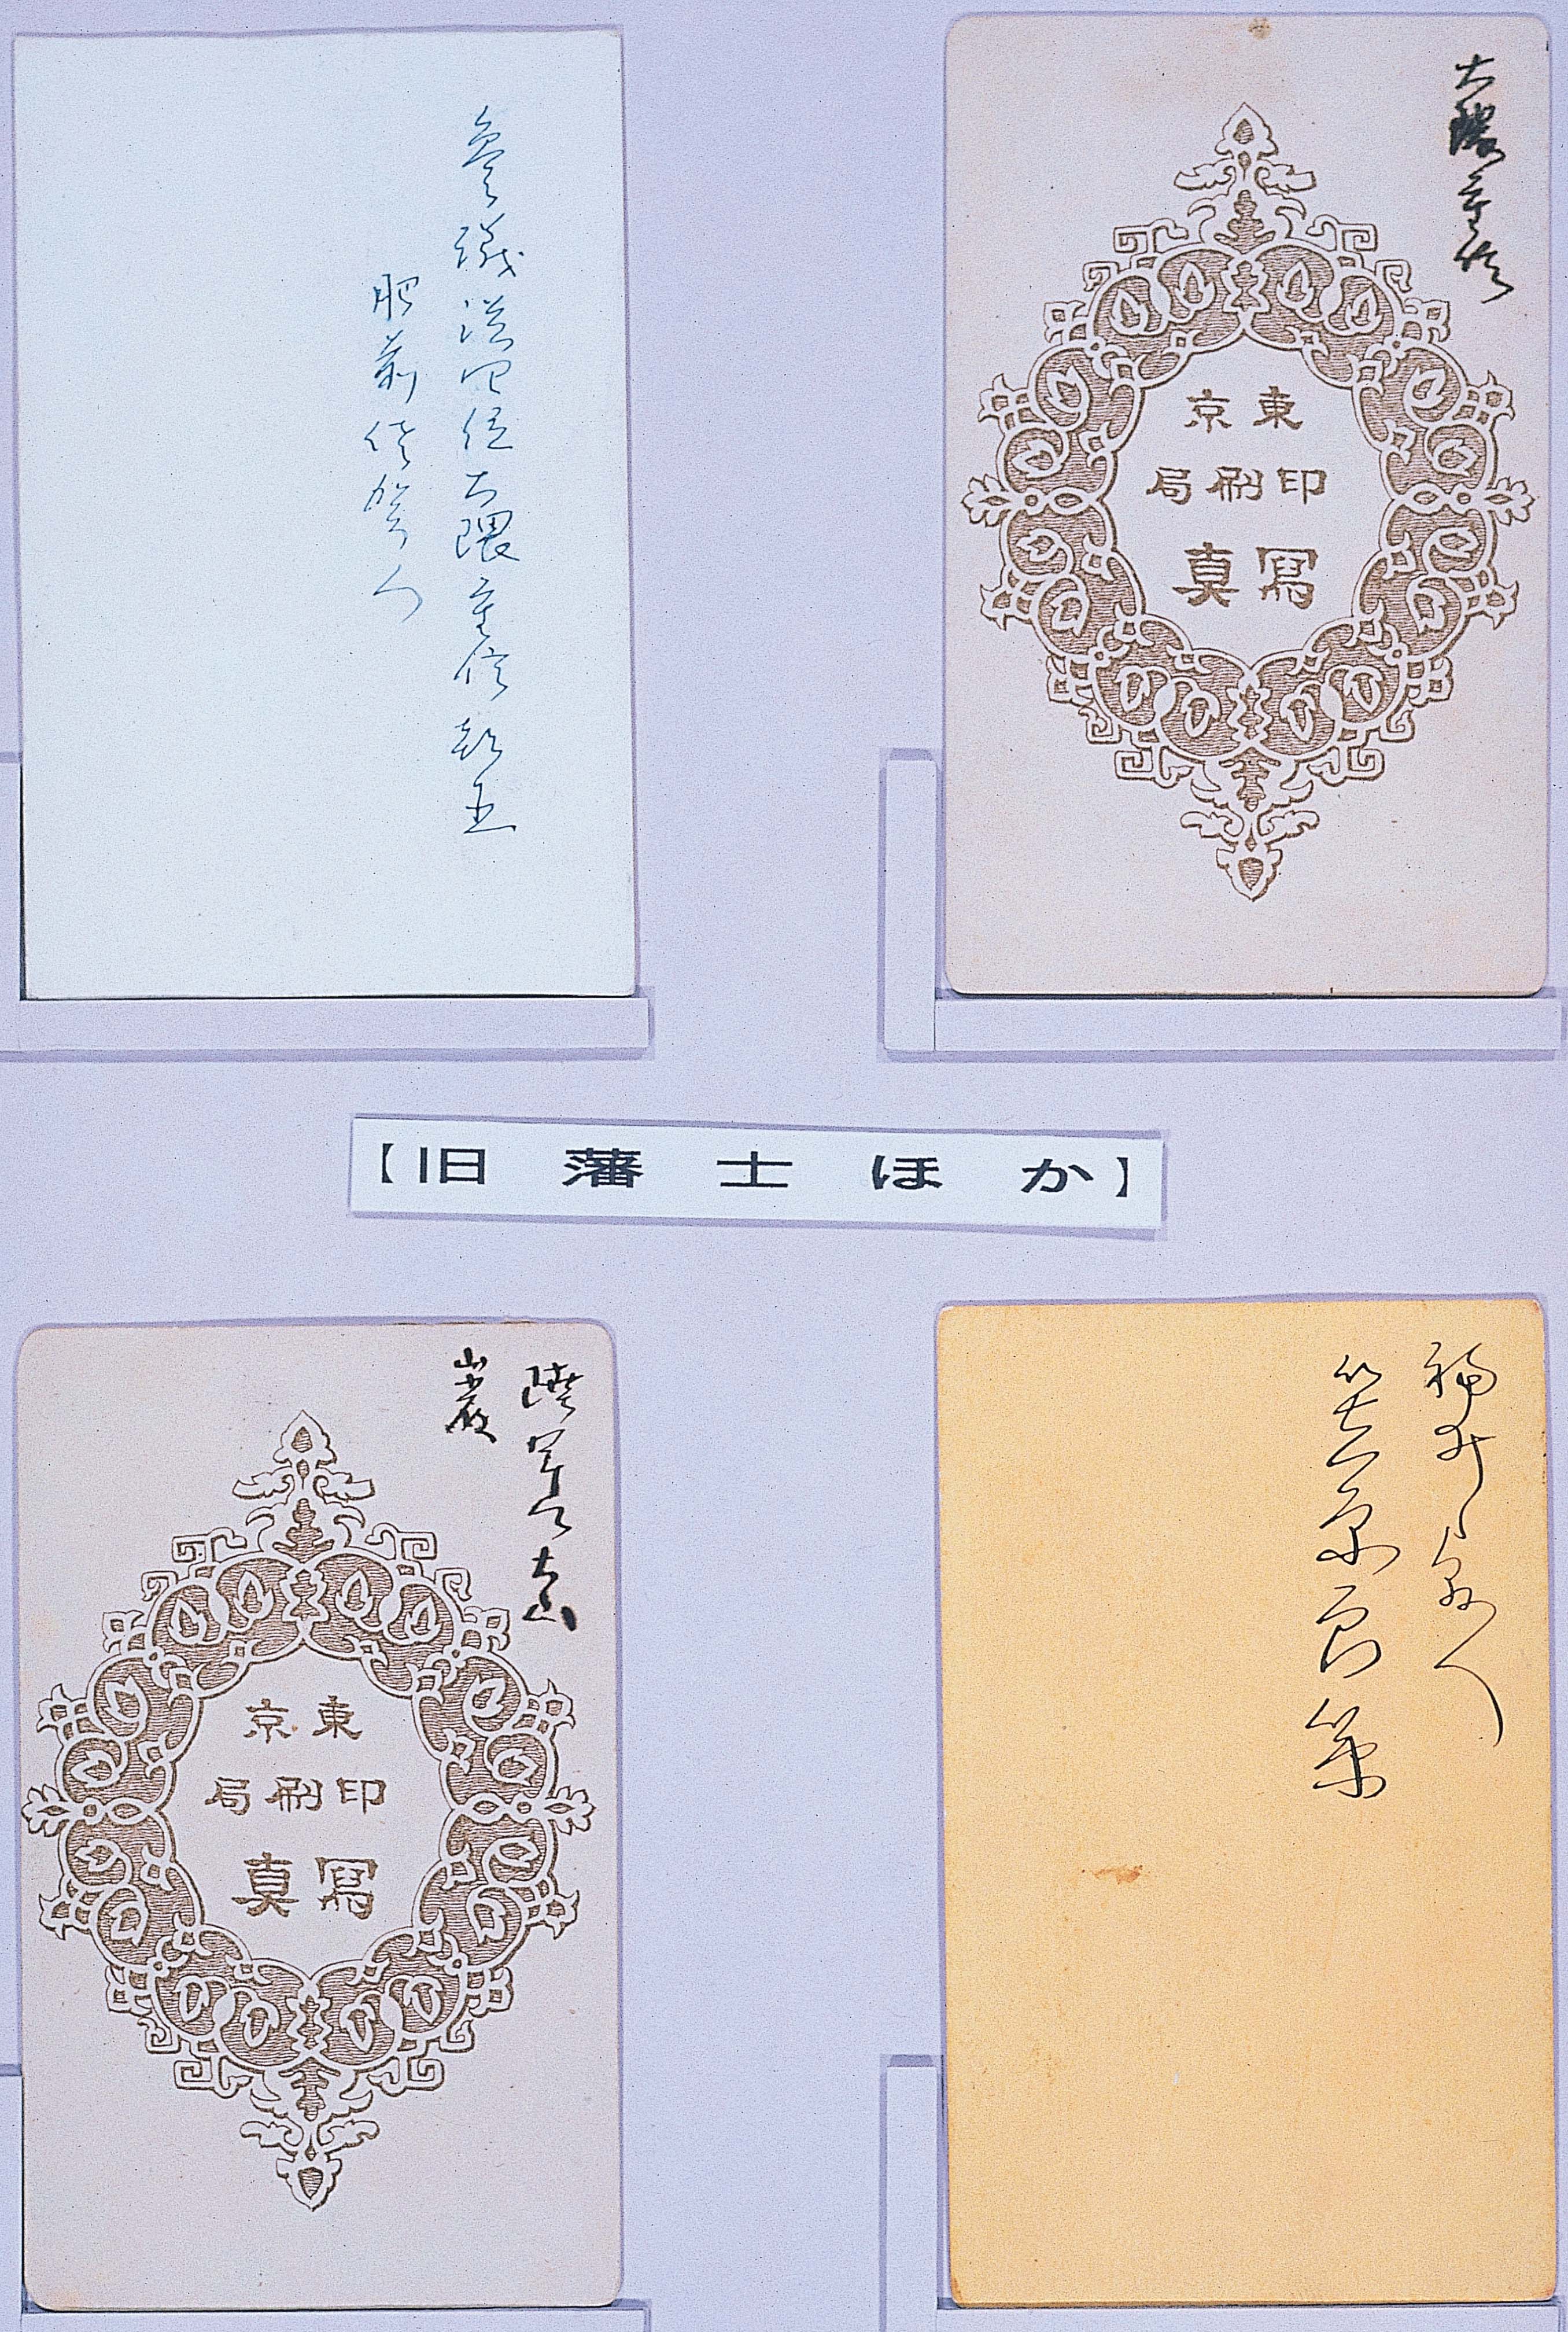 大隈重信
東京
印刷局
寫真
参議従四位大隈重信朝臣
肥前佐賀人
【旧藩士ほか】
福井人
笠原良策
陸軍大山
巌
東京
印刷局
寫真